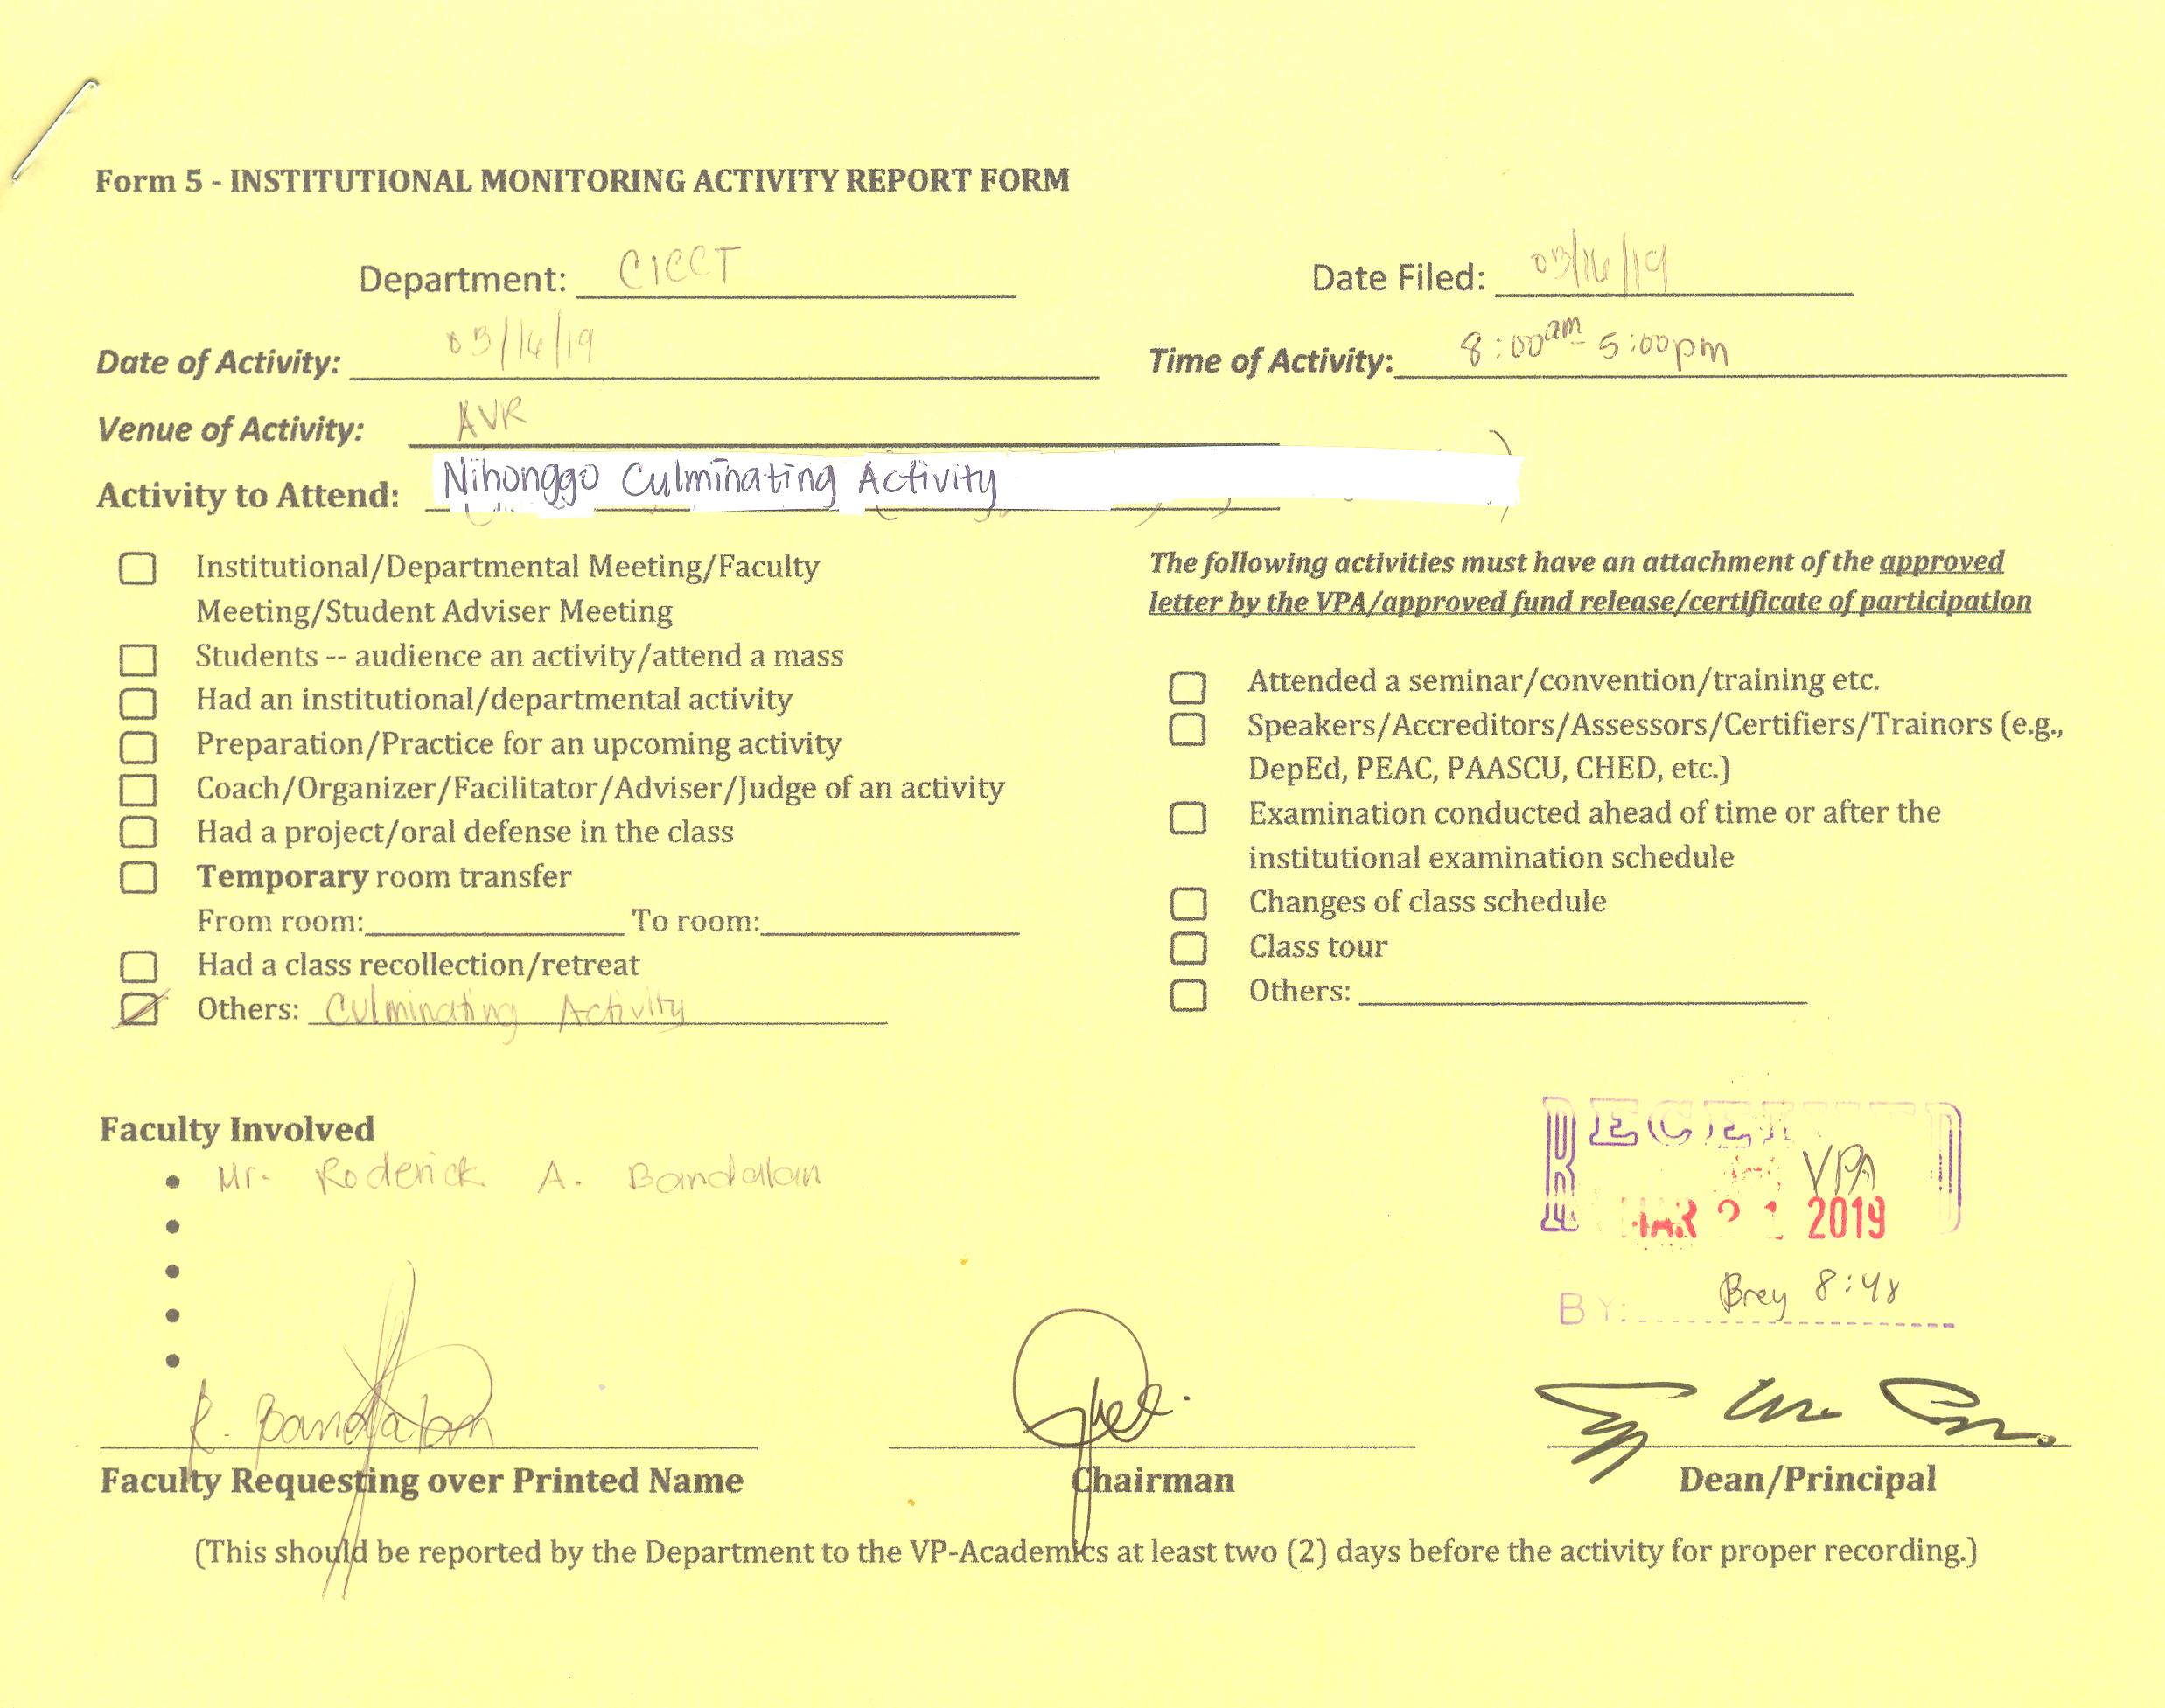 Form 5 - INSTITUTIONAL MONITORING ACTIVITY REPORT FORM
Department: CICCT Date Filed: 03/16/19
Date of Activity: 03/16/19 Time of Activity: 8:00am - 5:00pm
Venue of Activity: AVR
Activity to Attend: Nihonggo Culminating Activity
Institutional/Departmental Meeting/Faculty
Meeting/Student Adviser Meeting
Students -- audience an activity/attend a mass
Had an institutional/departmental activity
Preparation/Practice for an upcoming activity
Coach/Organizer/Facilitator/Adviser/Judge of an activity
Had a project/oral defense in the class
Temporary room transfer
From room: To room:
Had a class recollection/retreat
Others: Culminating Activity
The following activities must have an attachment of the approved
letter by the VPA/approved fund release/certificate of participation
Attended a seminar/convention/training etc.
Speakers/Accreditors/Assessors/Certifiers/Trainors (e.g.,
DepEd, PEAC, PAASCU, CHED, etc.)
Examination conducted ahead of time or after the
institutional examination schedule
Changes of class schedule
Class tour
Others:
Faculty Involved
Mr. Roderick A. Bandalan
RECEIVED
VPA
MAR 21 2019
BY: Brey 8:48
R. Bandalan
Faculty Requesting over Printed Name
Chairman
Dean/Principal
(This should be reported by the Department to the VP-Academics at least two (2) days before the activity for proper recording.)